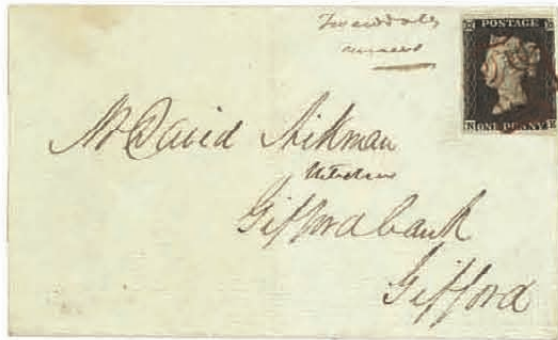 POSTAGE
ONE PENNY
Mr David Aikman
Giffordbank
Gifford